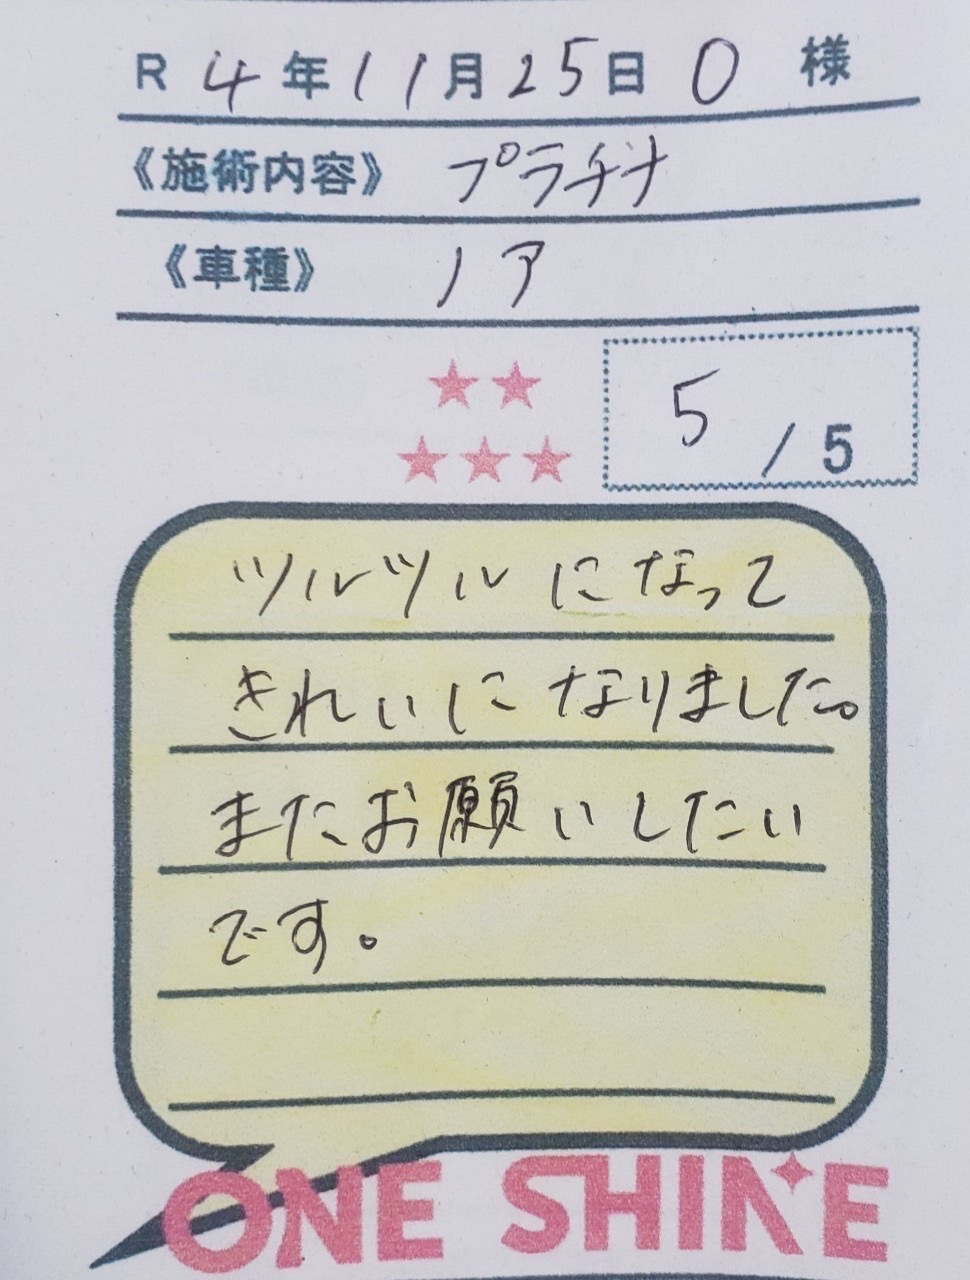 R 4年11月25日 O 様
《施術内容》 プラチナ
《車種》 ノア
5 / 5
ツルツルになって
きれいになりました。
またお願いしたい
です。
ONE SHINE